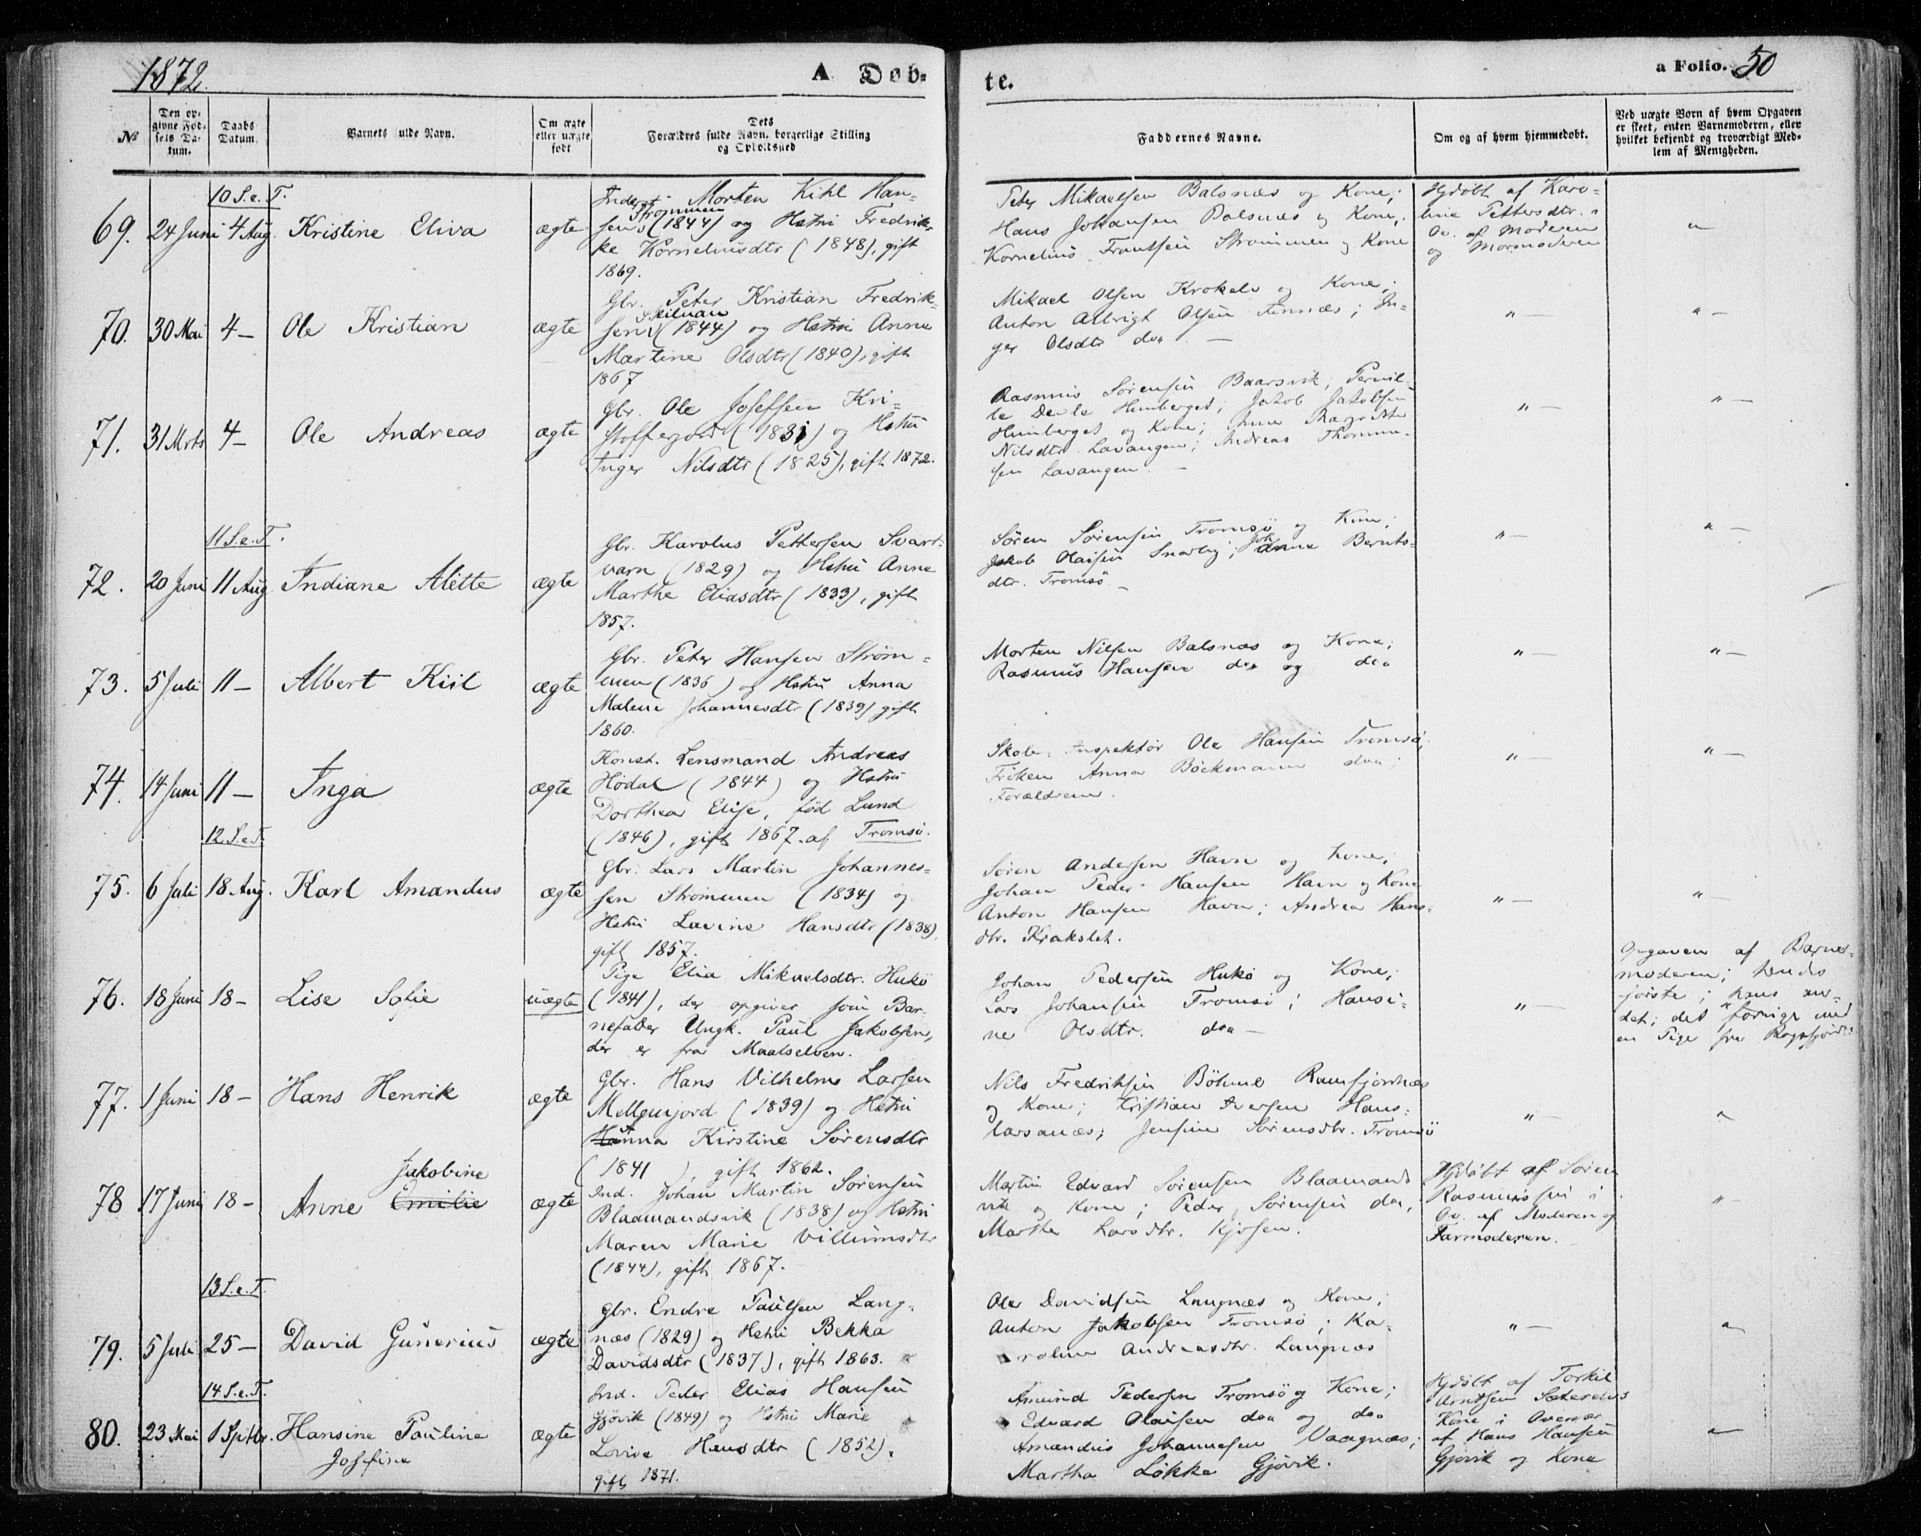 1872
A Døb-
te.
a Folio. 50
№
Den op-
givne Fød-
sels Da-
tum.
Daabs
Datum.
Barnets fulde Navn.
Om ægte
eller uægte
født.
Dets
Forældres fulde Navn, borgerlige Stilling
og Opholdssted
Faddernes Navne.
Om og af hvem hjemmedøbt.
Ved uægte Børn af hvem Opgaven
er skeet, enten Barnemoderen, eller
hvilket bekjendt og troværdigt Med-
lem af Menigheden.
10 S. e. T.
69. 24 Juni 4 Aug. Kristine Eliva ægte
Inderst Morten Kihl Han-
Strømmen
sen (1844) og Hstru Fredrik-
ke Korneliusdtr (1848), gift
1869.
Peter Mikaelsen Balsnæs og Kone;
Hans Johansen Balsnæs og Kone;
Kornelius Frantsen Strømmen og Kone
Hjdøbt af Karo-
line Pettersdtr. i
Ov. af Moderen
og Mormoderen
"
70. 30 Mai 4 — Ole Kristian ægte
Gbr. Peter Kristian Fredrik-
sen (1844) og Hstru Anne
Martine Olsdtr (1840), gift
1867
Mikael Olsen Krokelv og Kone;
Anton Albrigt Olsen Finnæs; In-
ger Olsdtr doa. —
" —
" —
71. 31 Mrts 4 — Ole Andreas ægte
Gbr. Ole Joseffsen Kri-
stoffejord (1831) og Hstru
Inger Nilsdtr (1825), gift 1872.
Rasmus Sørensen Baarsvik; Pernil-
le Himberget; Jakob Jakobsen
Himberget og Kone; Anne
Nilsdtr. Lavangen; Andreas Thomme-
sen Lavangen. —
" —
" —
11 S. e. T.
72. 20 Juni 11 Aug. Indiane Alette ægte
Gbr. Karolus Pettersen Svart-
varn (1829) og Hstru Anne
Marthe Eliasdtr (1833), gift
1857.
Søren Sørensen Tromsø og Kone;
Jakob Olaisen Snarby; Berntsdtr. Tromsø —
" —
" —
73. 5 Juli 11 — Albert Kiil ægte
Gbr. Peter Hansen Strøm-
men (1836) og Hstru Anna
Malene Johannesdtr (1839) gift
1860.
Morten Nilsen Balsnæs og Kone;
Rasmus Hansen doa og doa
" —
" —
74. 14 Juni 11 — Inga ægte
Konst. Lensmand Andreas
Hodal (1844) og Hstru
Dorthea Elise, fød Lund
(1846), gift 1867. af Tromsø.
Skole-Inspektør Ole Hansen Tromsø;
Frøken Anna Bøckmann doa;
Forældrene.
" —
" —
12 S. e. T.
75. 6 Juli 18 Aug. Karl Amandus ægte
Gbr. Lars Martin Johannes-
sen Strømmen (1834) og
Hstru Lavine Hansdtr (1838),
gift 1857.
Søren Andersen Havn og Kone;
Johan Peder Hansen Havn og Kone
Anton Hansen Havn; Andrea Hans-
dtr. Krakslet.
" —
" —
76. 18 Juni 18 — Lise Sofie uægte
Pige Elia Mikaelsdtr. Hukø
(1841), der opgiver som Bar-
nefader Ungk. Paul Jakobsen,
der er fra Maalselven.
Johan Pedersen Hukø og Kone;
Lars Johansen Tromsø; Hansi-
ne Olsdtr. doa —
" —
Opgaven af Barne-
moderen; hendes
første; hans an-
det; det forrige med
en Pige fra
77. 1 Juni 18 — Hans Henrik ægte
Gbr. Hans Vilhelm Larsen
Mellgurjord (1839) og Hstru
Hanna Kirstine Sørensdtr
(1841), gift 1862.
Nils Fredriksen Bøhme Ramfjornæs
og Kone; Kristian Iversen Hans-
larsanæs; Jensine Sørensdtr. Tromsø
" —
"
78 17 Juni 18 — Anne Emilie ægte
Jakobine
Ind. Johan Martin Sørensen
Blaamandsvik (1838) og Hstru
Maren Marie Villumsdtr
(1844), gift 1867.
Martin Edvard Sørensen Blaamands
vik og Kone; Peder Sørensen doa,
Marthe Larsdtr. Kjosen.
Hjdøbt af Søren
Rasmussen i
Ov. af Moderen og
Farmoderen.
" —
13 S. e. T.
79. 5 Juli 25 — David Gunerius ægte
Gbr. Endre Paulsen Lang-
næs (1829) og Hstru Bekka
Davidsdtr (1837), gift 1863.
Ole Davidsen Langnæs og Kone;
Anton Jakobsen Tromsø; Ka-
roline Andreasdtr. Langnæs
" —
"
14 S. e. T.
80. 23 Mai 1 Sptbr. Hansine Pauline ægte
Josefine
Ind. Peder Elias Hansen
Gjøvik (1849) og Hstru Marie
Lovise Hansdtr (1852).
gift 1871.
Amund Pedersen Tromsø og Kone;
Edvard Olaisen doa og doa
Amandus Johannesen Vaagnæs;
Martha Løkke Gjøvik.
Hjdøbt af Torkil
Arntsen
Kone i Overvær
af Hans Hansen
Gjøvik og Kone
"